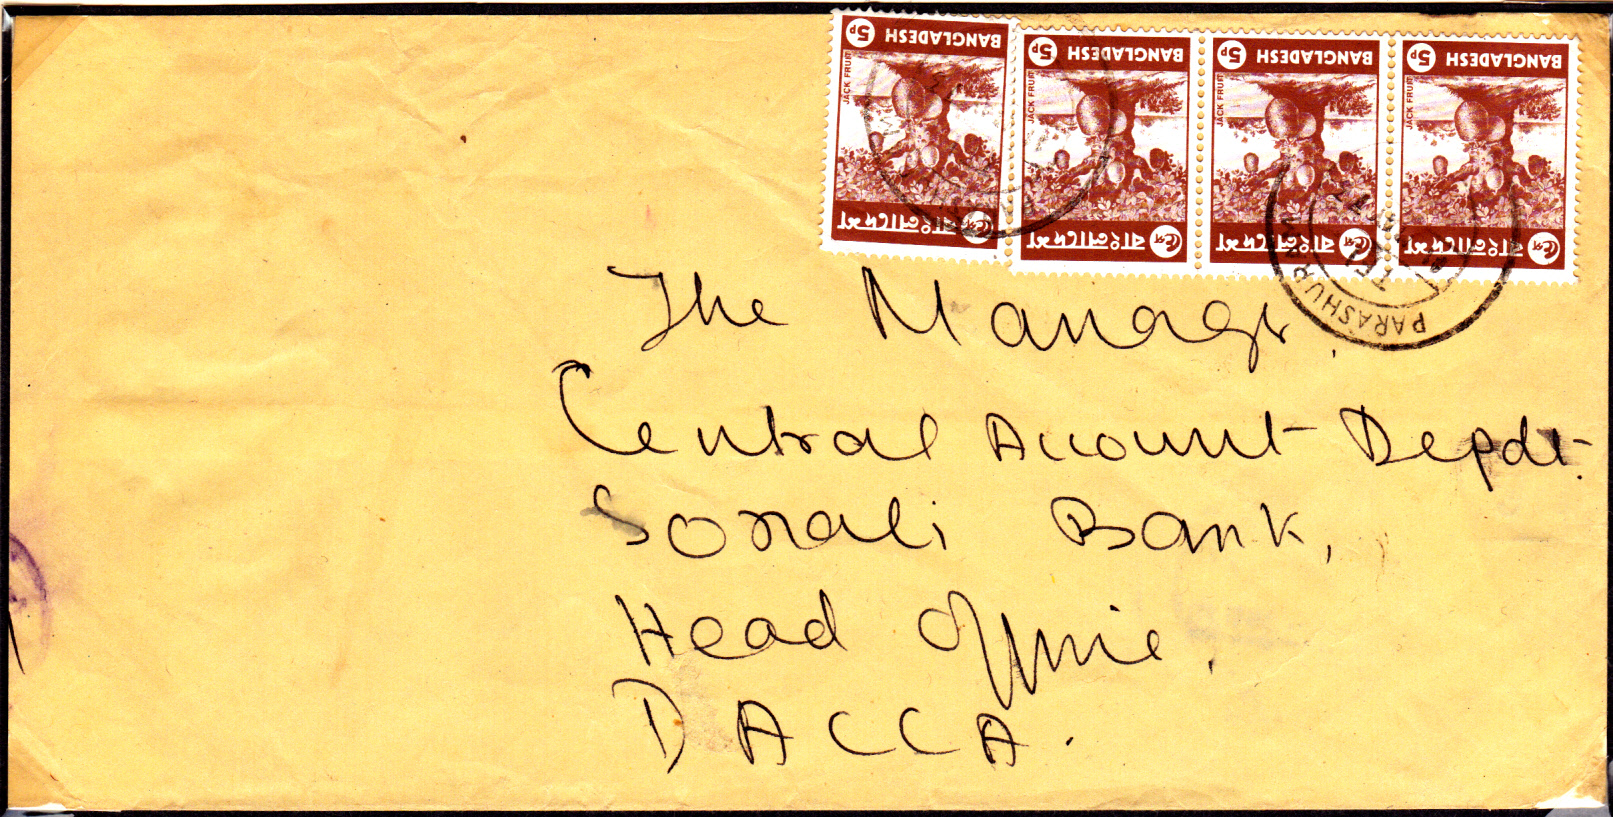 BANGLADESH 5p
JACK FRUIT
বাংলাদেশ ৫প
BANGLADESH 5p
JACK FRUIT
বাংলাদেশ ৫প
BANGLADESH 5p
JACK FRUIT
বাংলাদেশ ৫প
BANGLADESH 5p
JACK FRUIT
বাংলাদেশ ৫প
PARASHURAM
The Manager,
Central Account Depdt.
Sonali Bank,
Head Office,
DACCA.